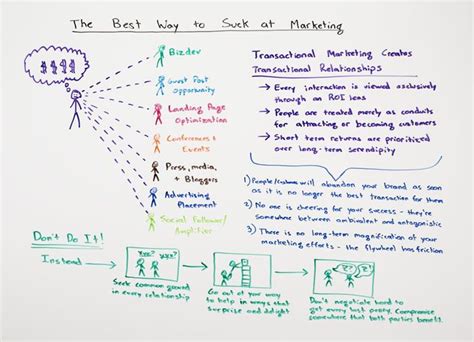 The Best Way to Suck at Marketing
$ $ $ $
Bizdev
Guest Post
Opportunity
Landing Page
Optimization
Conferences &
Events
Press, media,
+ Bloggers
Advertising
Placement
Social Follower/
Amplifier
Transactional Marketing Creates
Transactional Relationships
→ Every interaction is viewed exclusively
through an ROI lens
→ People are treated merely as conduits
for attracting or becoming customers
→ Short term returns are prioritized
over long-term serendipity
1) People/customers will abandon your brand as soon
as it is no longer the best transaction for them
2) No one is cheering for your success - they're
somewhere between ambivalent and antagonistic
3) There is no long-term magnification of your
marketing efforts - the flywheel has friction
Don't Do It!
Instead
Seek common ground
in every relationship
Go out of your way
to help in ways that
surprise and delight
Don't negotiate hard to
get every last penny. Compromise
somewhere that both parties benefit.